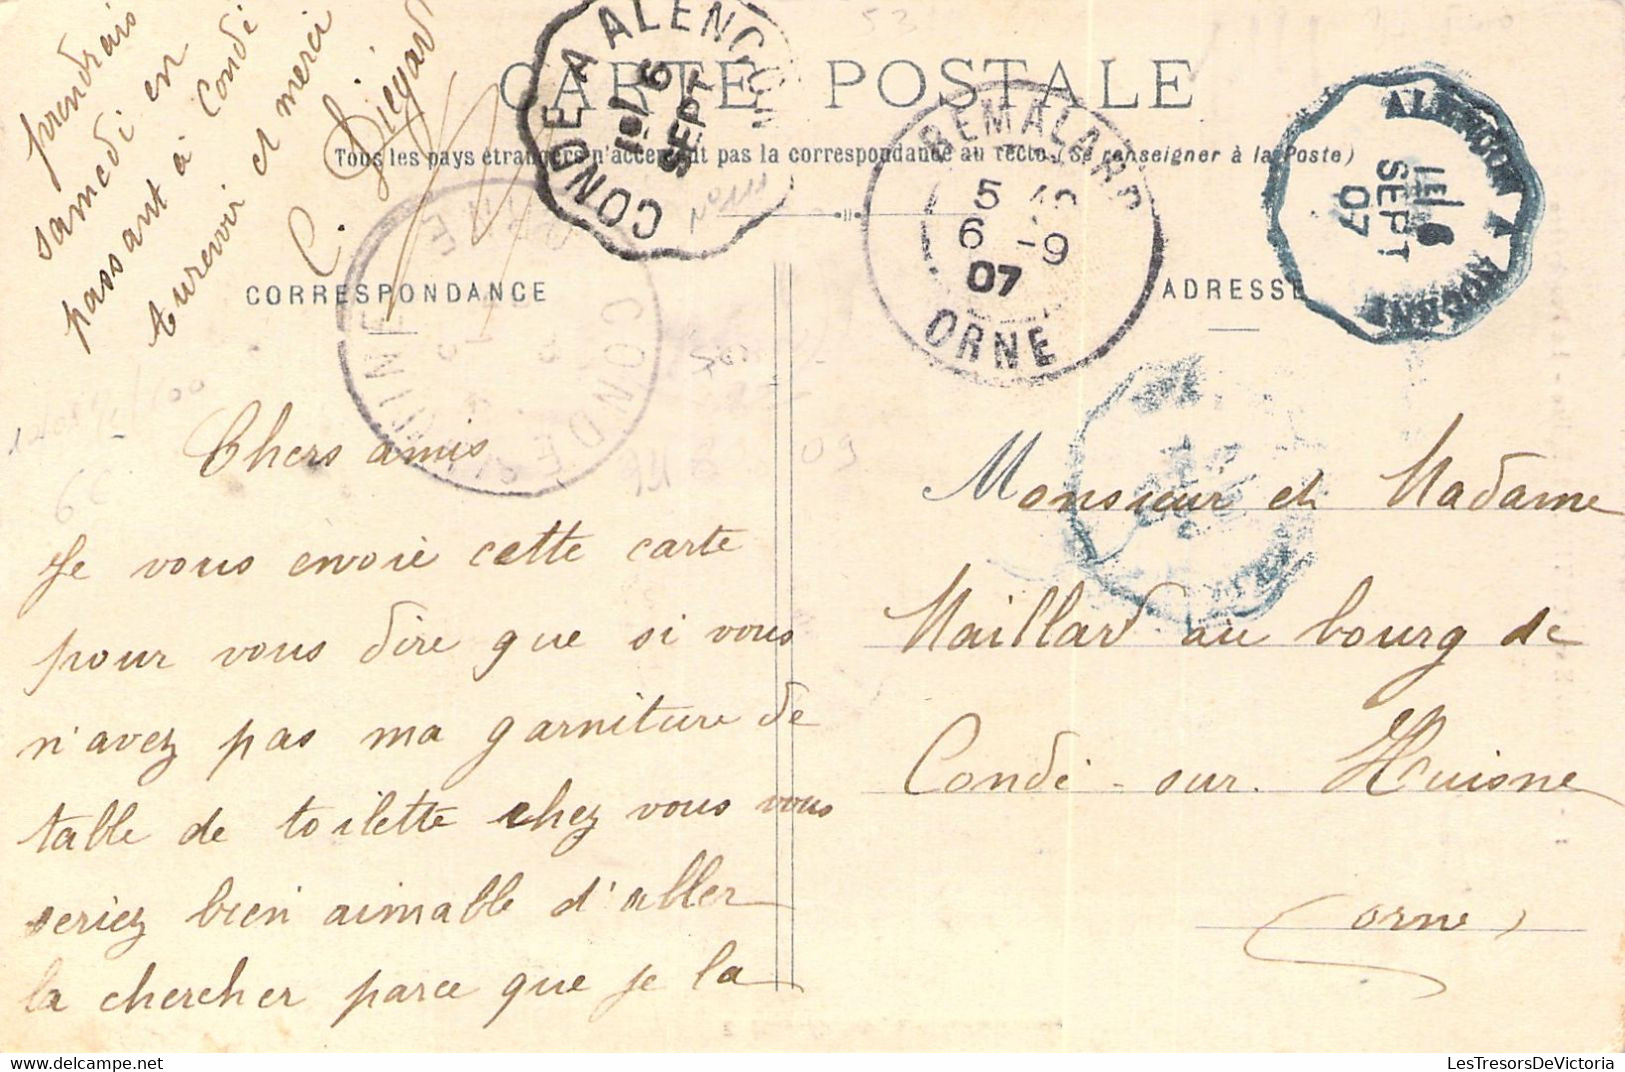 CARTE POSTALE
Tous les pays étrangers n'acceptent pas la correspondance au recto. (Se renseigner à la Poste)
CORRESPONDANCE
ADRESSE
CONDE A ALENCON
1º/ 6
SEPT
REMALARD
5
6 -9
07
ORNE
ALENCON A
1E/ 6
SEPT
07
CONDÉ
ORNE
Chers amis
Je vous envoie cette carte
pour vous dire que si vous
n'avez pas ma garniture de
table de toilette chez vous vous
seriez bien aimable d'aller
la chercher parce que je la
prendrais
samedi en
passant à Condé
Aurevoir et merci
C.
Monsieur et Madame
Maillard au bourg de
Condé-sur-Huisne
(orne)
LesTresorsDeVictoria